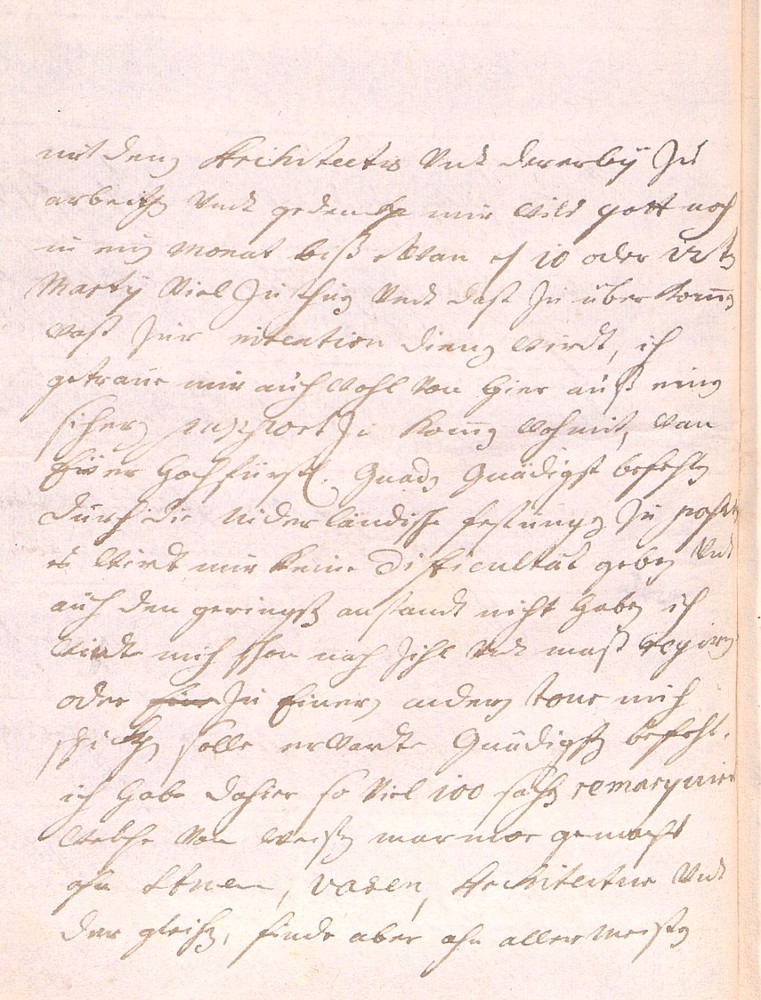 mit denen Architectis Undt dererley Zu
arbeithen Undt gedencke mir Wils gott noch
in ein Monat biß etwan d 10 oder 12ten
Marty Viel Zu thun Undt dass Zu über komen
Waß Zur intention dienen Wirdt, ich
getraue mir auch Wohl Von hier auß einen
sichern passport Zu komen Wohmit, Wan
Eüer Hochfürstl. Gnaden Gnädigst befehlen
durch die Niderländische festungen Zu
es Wirdt mir keine difficultät geben Undt
auch den geringsten anstandt nicht haben ich
Wirdt mich schon nach Zihl Undt maß
oder Zu Einer andern tour mich
schicken solle erWarthe Gnädigsten befehl.
ich habe dahier so Viel 100 sachen remarquirt
Welche Von Weißen marmor gemacht
ahn, vasen, Architectur Undt
der gleichen, finde aber ahn allermeisten